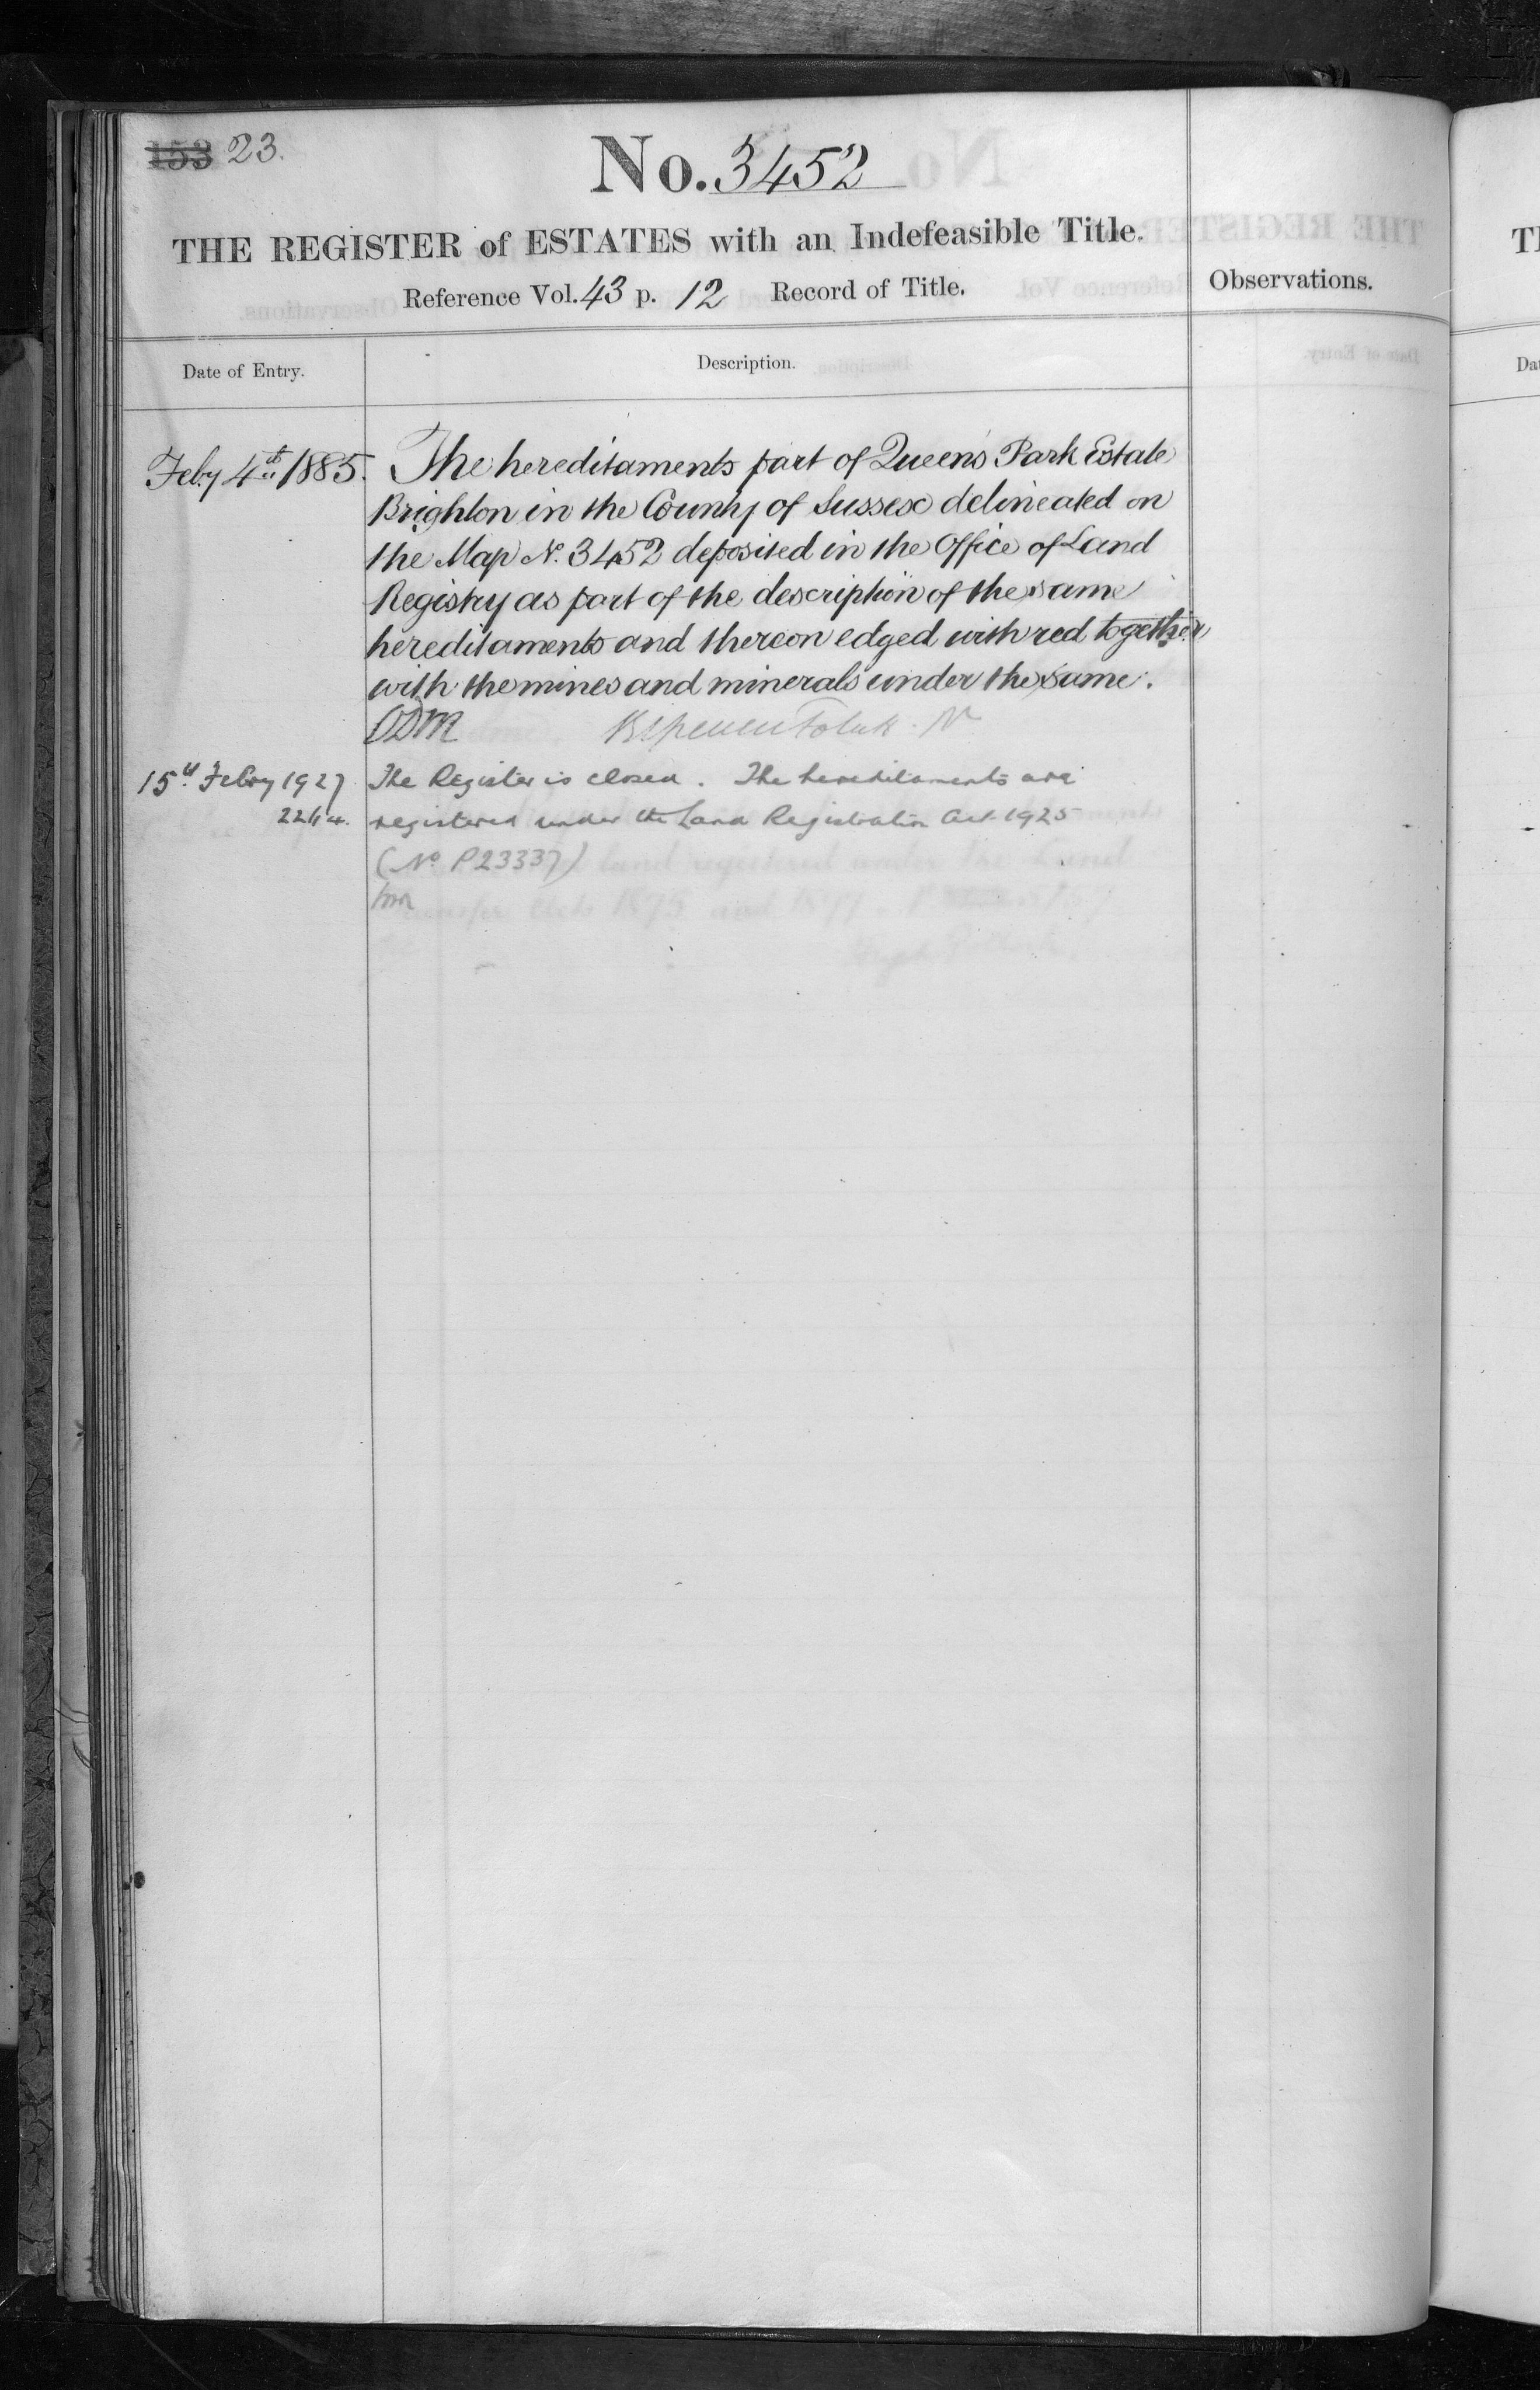 153 23.
No. 3452
THE REGISTER of ESTATES with an Indefeasible Title.
Reference Vol. 43 p. 12 Record of Title.
Observations.
Date of Entry.
Description.
Feby 4th 1885. The hereditaments part of Queen's Park Estate
Brighton in the County of Sussex delineated on
the Map No. 3452 deposited in the Office of Land
Registry as part of the description of the same
hereditaments and thereon edged with red together
with the mines and minerals under the same.
15th Febry 1927 The Register is closed. The hereditaments are
registered under the Land Registration Act 1925
(No P23337)